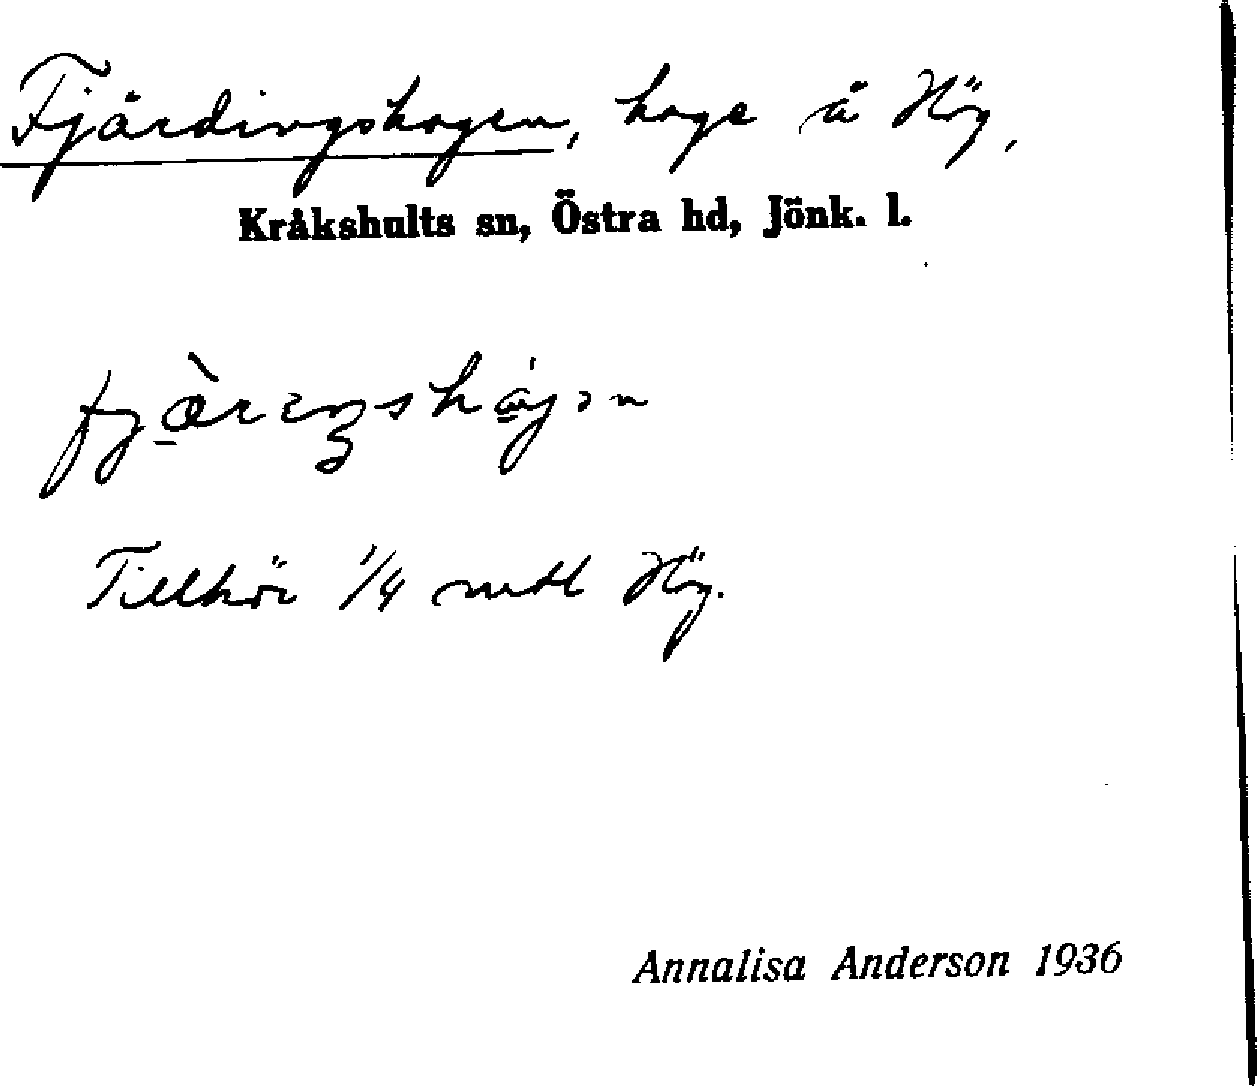 Fjärdingshagen, hage å Hög,
Kråkshults sn, Östra hd, Jönk. l.
Tillhör 1/4 mtl Hög.
Annalisa Anderson 1936